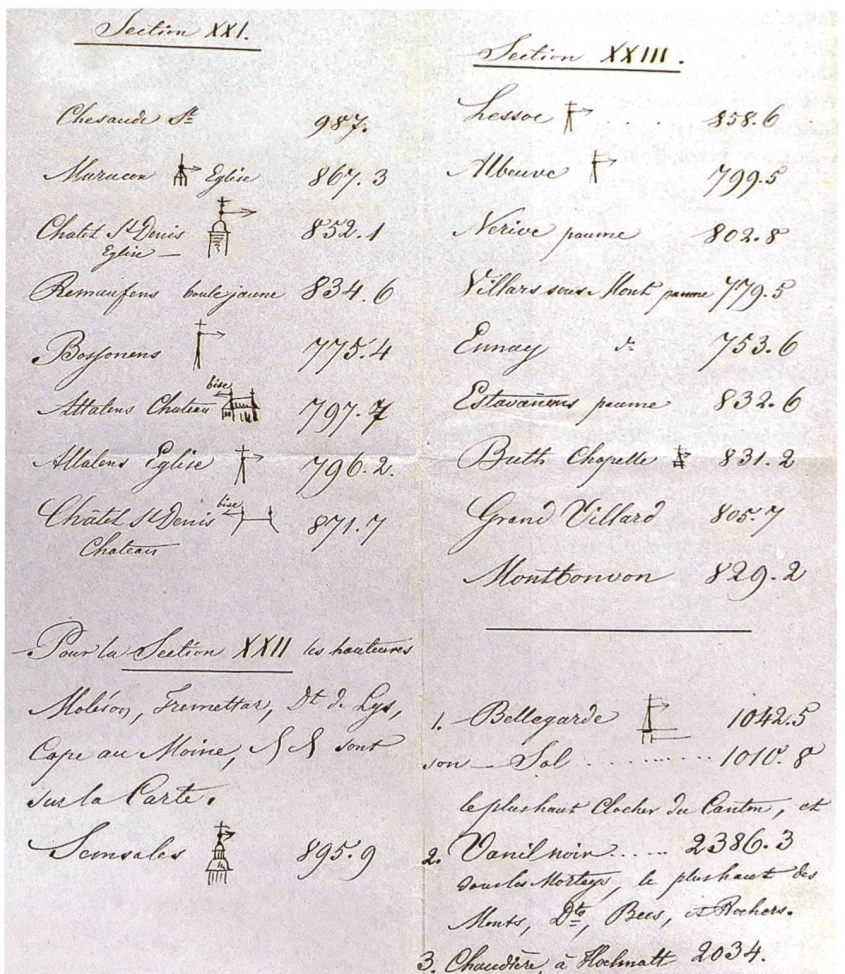 Section XXI.
Chesaude St 987.
Maracon Eglise 867.3
Chatel St Denis 852.1
Eglise —
Remaufens boule jaune 834.6
Bossonens 775.4
bise
Attalens Chateau 797.7
Attalens Eglise 796.2.
bise
Châtel St Denis 871.7
Chateau
Pour la Section XXII les hauteures
Moléson, Tremettaz, Dt de Lys,
Cape au Moine, sont
sur la Carte.
Semsales 895.9
Section XXIII.
Lessoc .... 858.6
Albeuve 799.5
Nerive paume 802.8
Villars sous Mont paume 779.5
Enney do 753.6
Estavanens paume 832.6
Buth Chapelle 831.2
Grand Villard 805.7
Montbonvon 829.2
1. Bellegarde 1042.5
son — Sol .......... 1010.8
le plus haut Clocher du Canton, et
2. Vanil noir ..... 2386.3
sous les Morteys, le plus haut des
Monts, Dts, Becs, et Rochers.
3. Chaudère, à Hochmatt 2034.